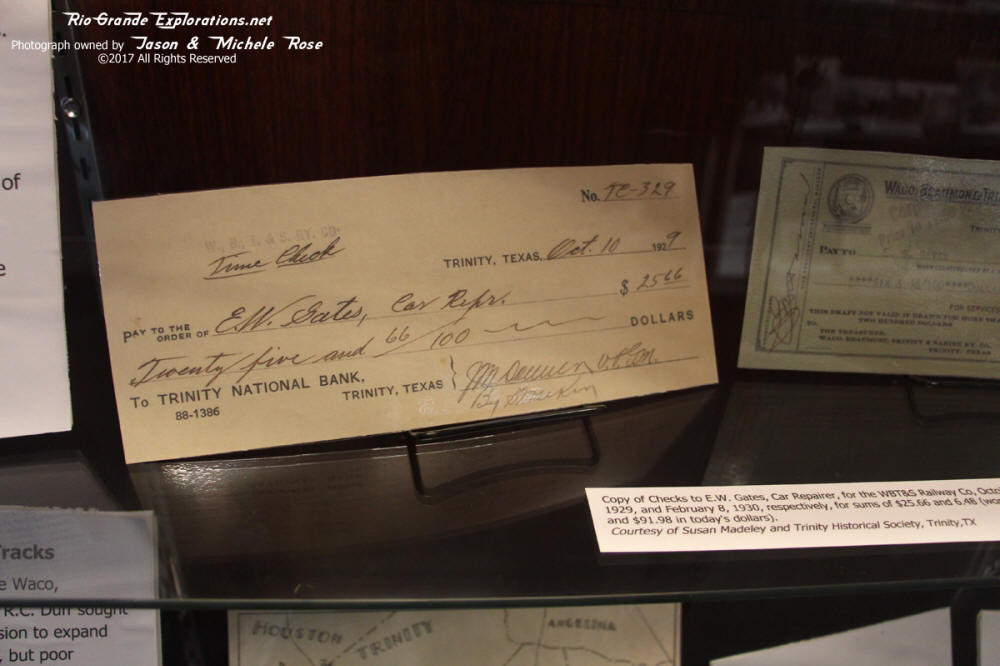 Rio Grande Explorations.net
Photograph owned by Jason & Michele Rose
©2017 All Rights Reserved
of
No. TC-329
W., B., T. & S. RY. CO.
Time Check
TRINITY, TEXAS, Oct. 10 1929
PAY TO THE ORDER OF E.W. Gates, Car Repr. $ 25 66
Twenty five and 66/100 DOLLARS
To TRINITY NATIONAL BANK,
88-1386
TRINITY, TEXAS
By
WACO, BEAUMONT, TRI
TRINITY
PAY TO
FOR SERVICES
THIS DRAFT NOT VALID IF DRAWN FOR MORE THA
TWO HUNDRED DOLLARS
TO.
THE TREASURER,
WACO, BEAUMONT, TRINITY & SABINE RY. CO.
TRINITY, TEXAS
Copy of Checks to E.W. Gates, Car Repairer, for the WBT&S Railway Co, Octo
1929, and February 8, 1930, respectively, for sums of $25.66 and 6.48 (wor
and $91.98 in today's dollars).
Courtesy of Susan Madeley and Trinity Historical Society, Trinity,TX
Tracks
e Waco,
R.C. Duff sought
sion to expand
, but poor
HOUSTON
TRINITY
ANGELINA